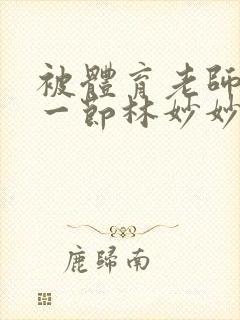 被體育老師
一節林妙妙
鹿歸南